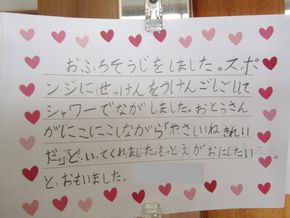 おふろそうじをしました。スポ
ンジにせっけんをつけんごしごして
シャワーでながしました。おとうさん
がにこにこしながら「やさいねきれい
だ。」と、いってくれました。もっとえがおにしたい
と、おもいました。